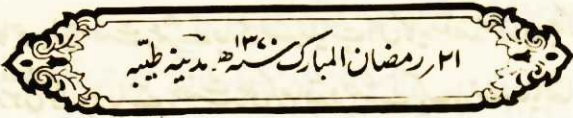 ۲۱؍ رمضان المبارک ۱۳۷۰ھ مدینہ طیّبہ